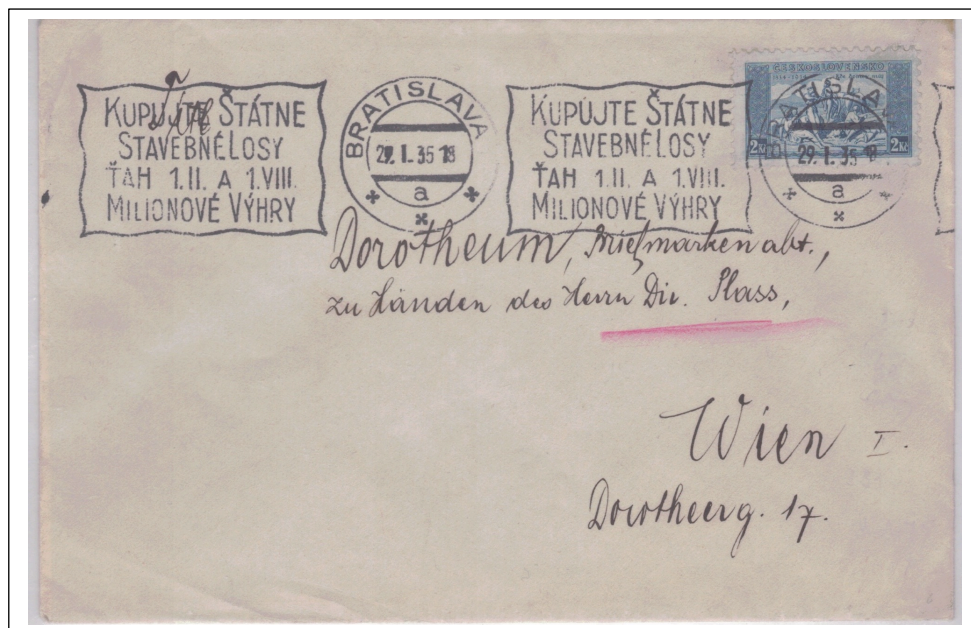 KUPUJTE ŠTÁTNE
STAVEBNÉ LOSY
ŤAH 1.II. A 1.VIII.
MILIONOVÉ VÝHRY
BRATISLAVA
29.I.35 18
a
KUPUJTE ŠTÁTNE
STAVEBNÉ LOSY
ŤAH 1.II. A 1.VIII.
MILIONOVÉ VÝHRY
ČESKOSLOVENSKO
2Kč 2Kč
BRATISLAVA
29.I.35 18
a
Dorotheum, Briefmarkenabt.,
zu Händen des Herrn Dir. Plass,
Wien I.
Dorotheerg. 17.